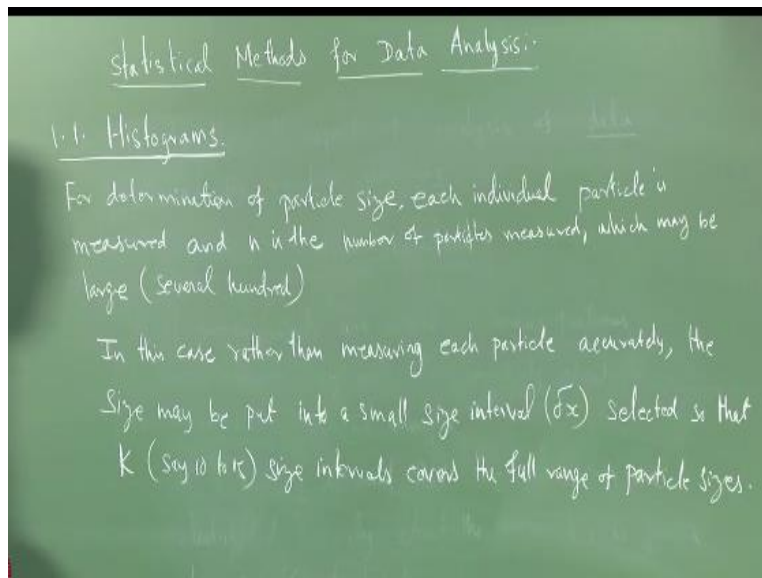 Statistical Methods for Data Analysis:-
1.1. Histograms.
For determination of particle size, each individual particle is
measured and n is the number of particles measured, which may be
large (several hundred)
In this case rather than measuring each particle accurately, the
Size may be put into a small size interval (δx) selected so that
K (say 10 to 15) size intervals covers the full range of particle sizes.